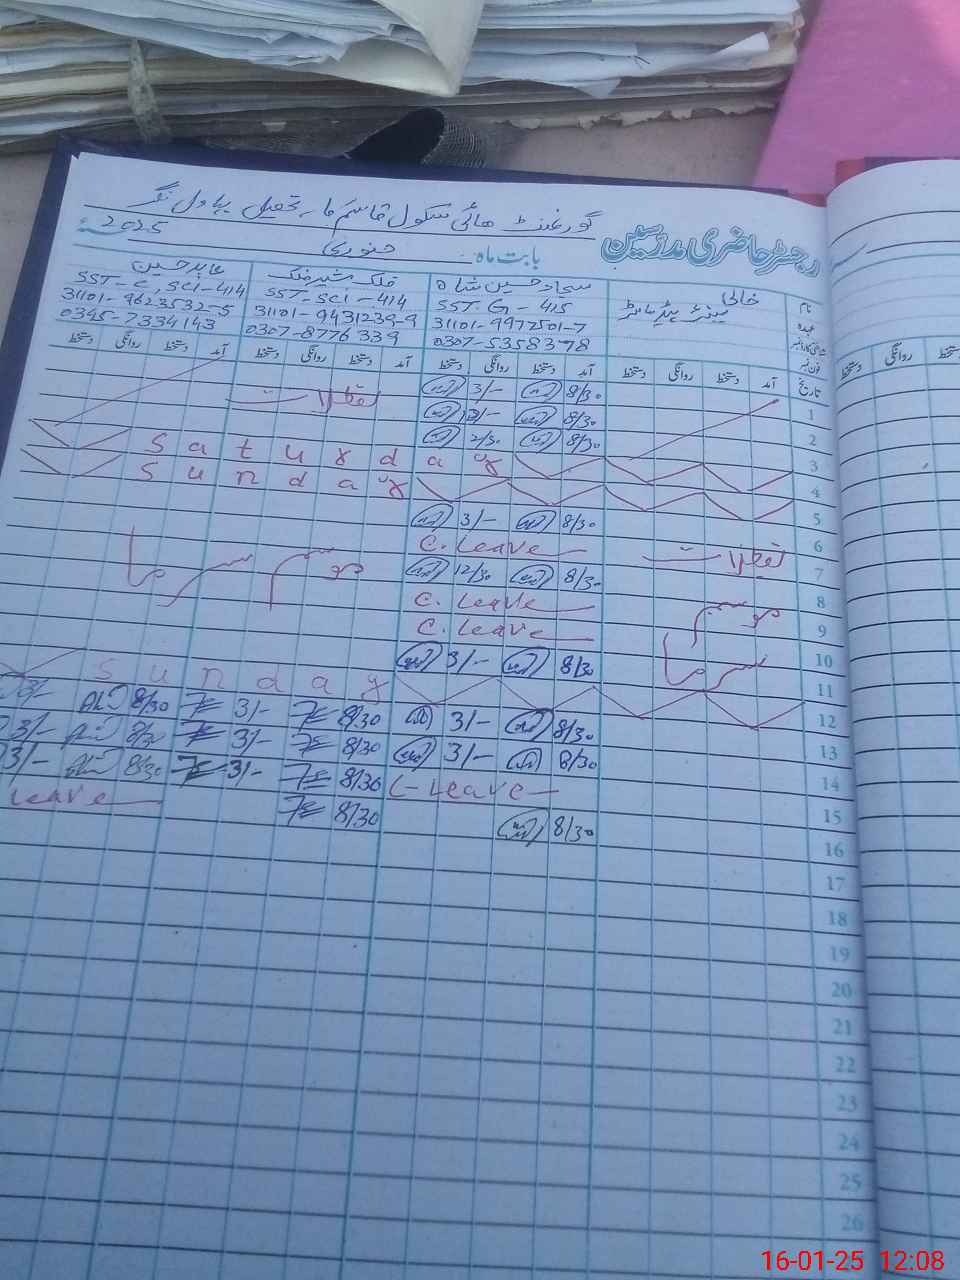 گورنمنٹ ہائی سکول قاسم کا۔ تحصیل بہاول نگر
رجسٹر حاضری مدرسین بابت ماہ جنوری 2025ء
نام خالی سجاد حسین شاہ ملک بشیر ملک عابد حسین
عہدہ سینئر ہیڈ ماسٹر SST-G-415 SST-SCI-414 SST-C,SCI-414
شناختی کارڈ نمبر 31101-9977501-7 31101-9431239-9 31101-9623532-5
فون نمبر 0307-5358378 0307-8776339 0345-7334143
تاریخ آمد دستخط روانگی دستخط آمد دستخط روانگی دستخط آمد دستخط روانگی دستخط آمد دستخط روانگی دستخط
روانگی دستخط
1 8/30 3/-
تعطیلات
2 8/30
3 8/30 2/30
4 Saturday
5 Sunday
6 8/30 3/-
7 C. Leave
تعطیلات
8 8/30 12/30
موسم سرما
موسم سرما
9 C. Leave
10 C. Leave
11 8/30 3/-
12 Sunday
13 8/30 3/- 8/30 3/- 8/30 3/-
14 8/30 3/- 8/30 3/- 8/30 3/-
15 C-Leave 8/30 3/- 8/30 3/-
16 8/30 8/30 Leave
17
18
19
20
21
22
23
24
25
26
16-01-25 12:08